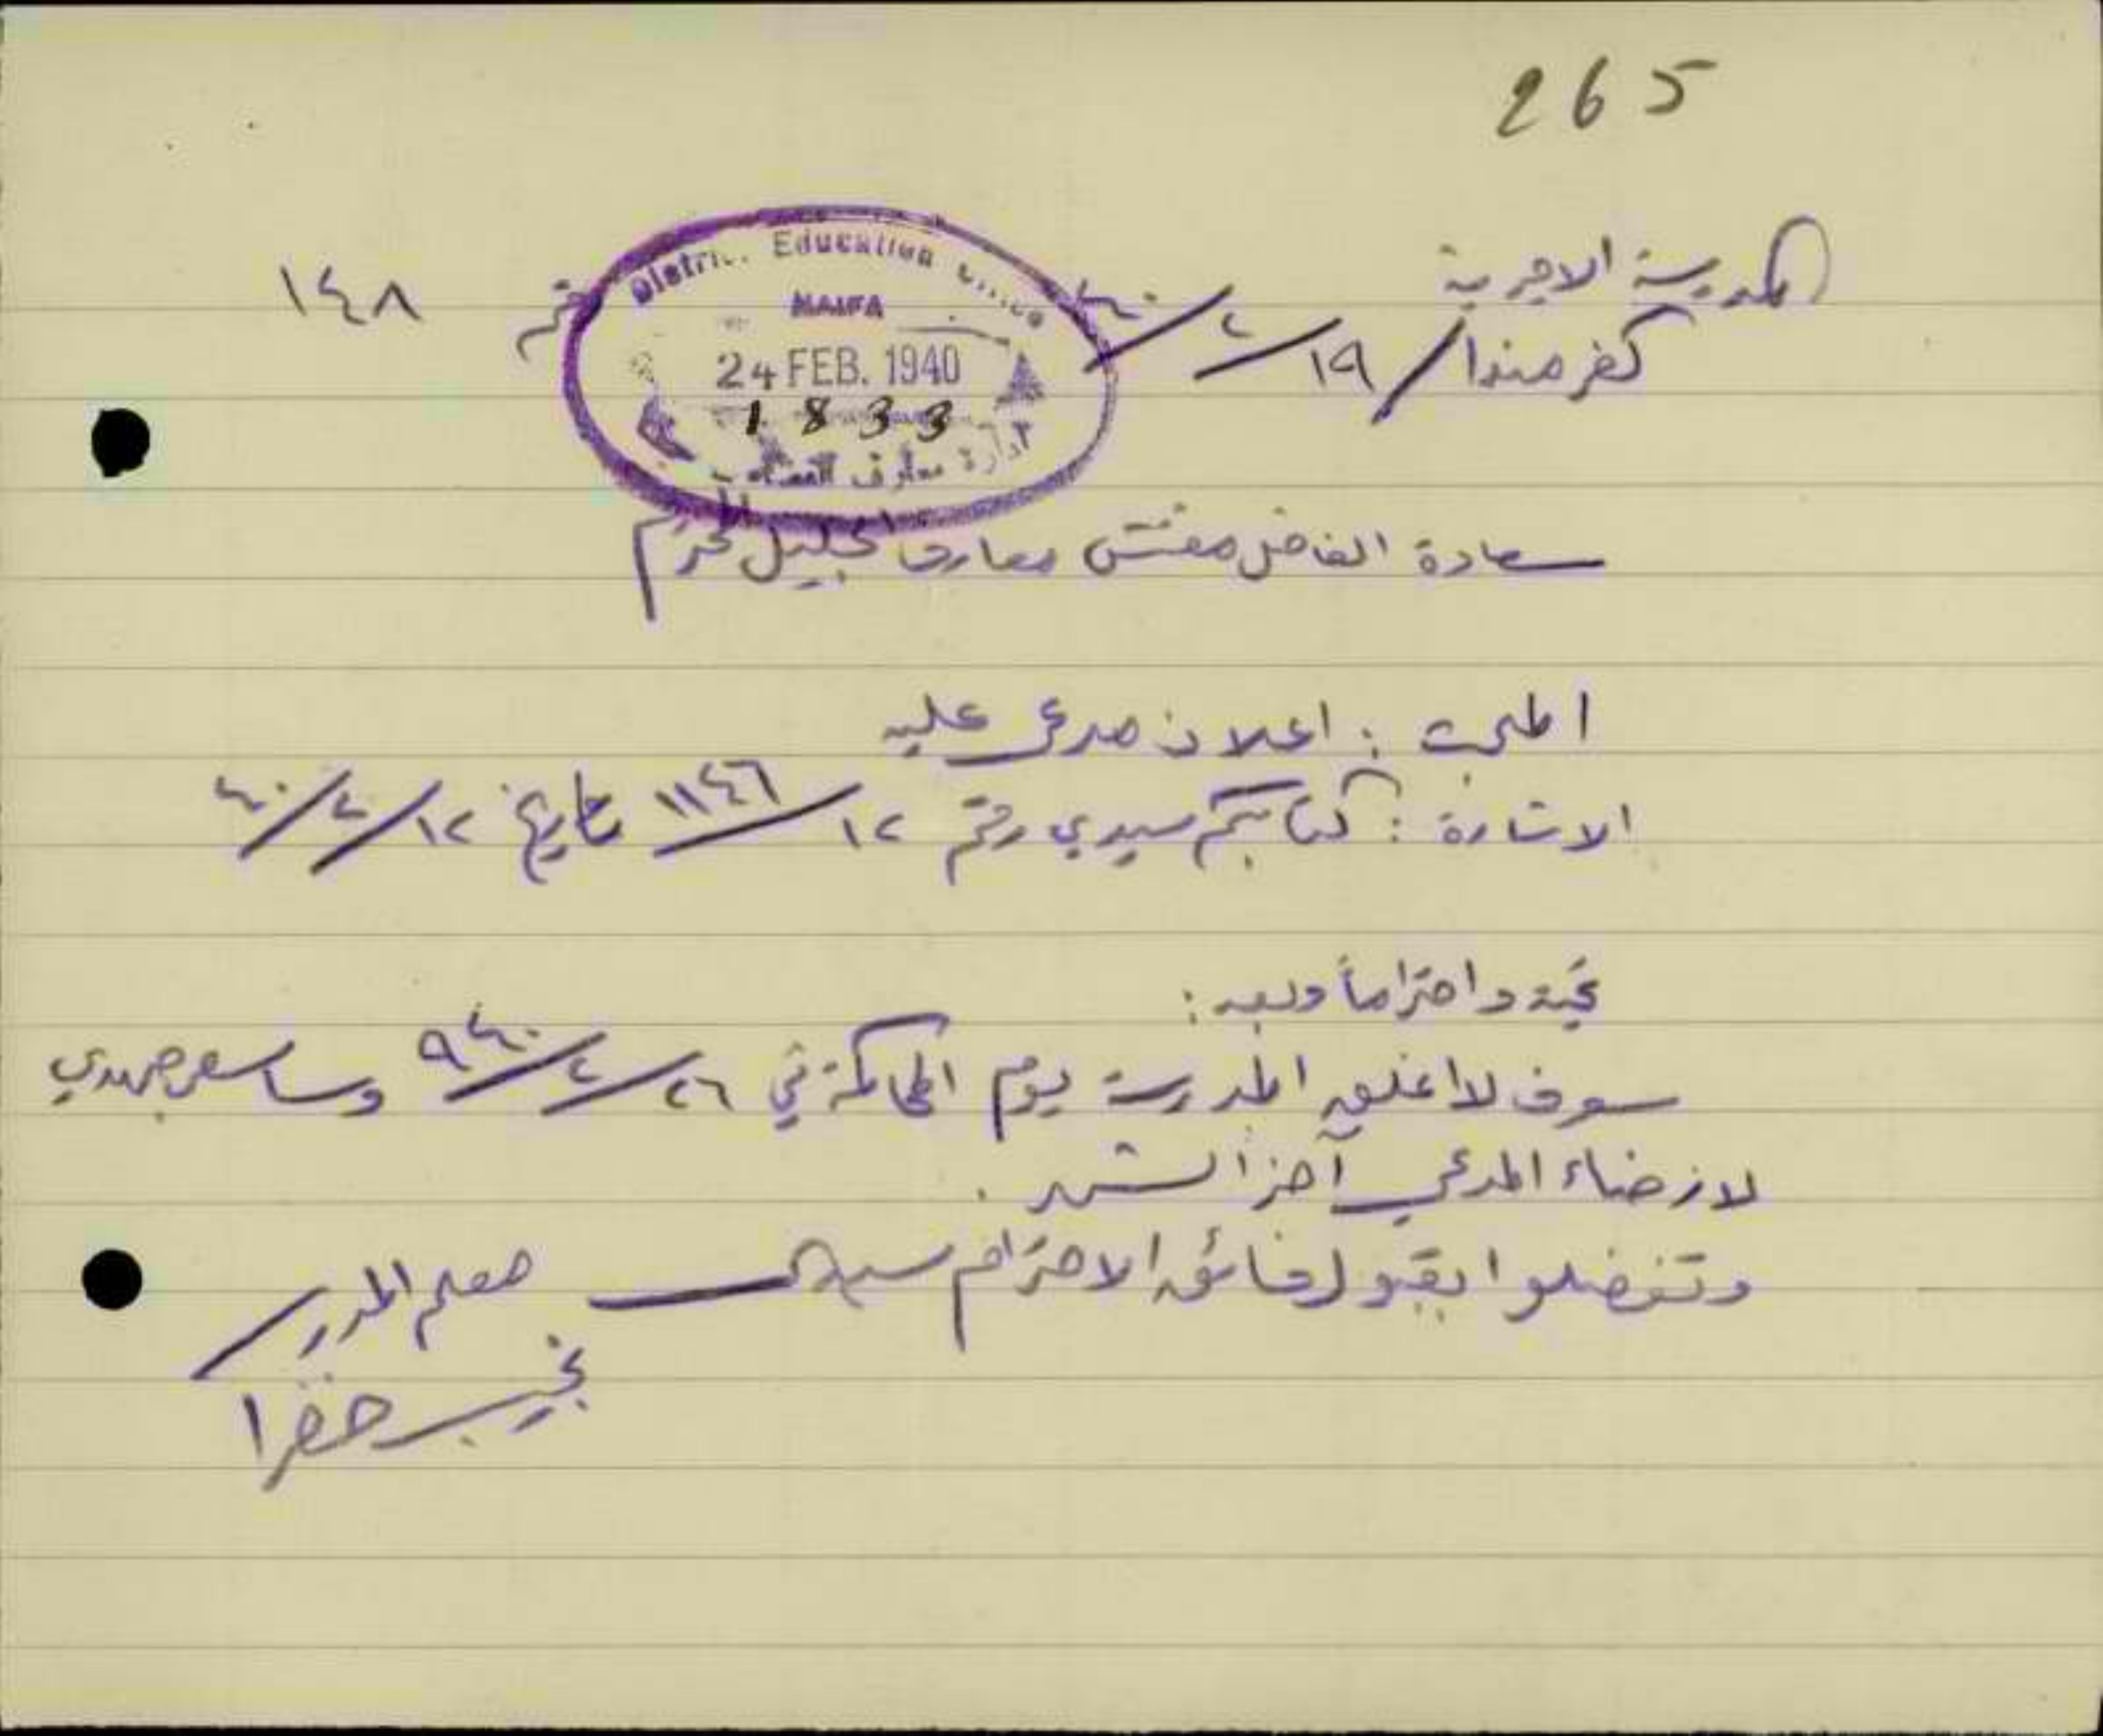 265
المدرسة الاميرية
رقم ١٤٨
كفرمندا / ١٩/٢/٤٠
District Education Office
HAIFA
24 FEB. 1940
1833
ادارة معارف
سعادة الفاضل مفتش معارف الجليل المحترم
المبحث : اعلان مدعى عليه
الاشارة : كتابكم سيدي رقم ١٢/١١٤٦ تاريخ ١٢/٢/٤٠
تحية واحتراماً وبعد :
سوف لا اغلق المدرسة يوم المحاكمة في ٢٦/٢/٩٤٠ وساسعى جهدي
لارضاء المدعي آخر الشهر .
وتفضلوا بقبول فائق الاحترام سيدي
معلم المدرسة
نجيب خفرا